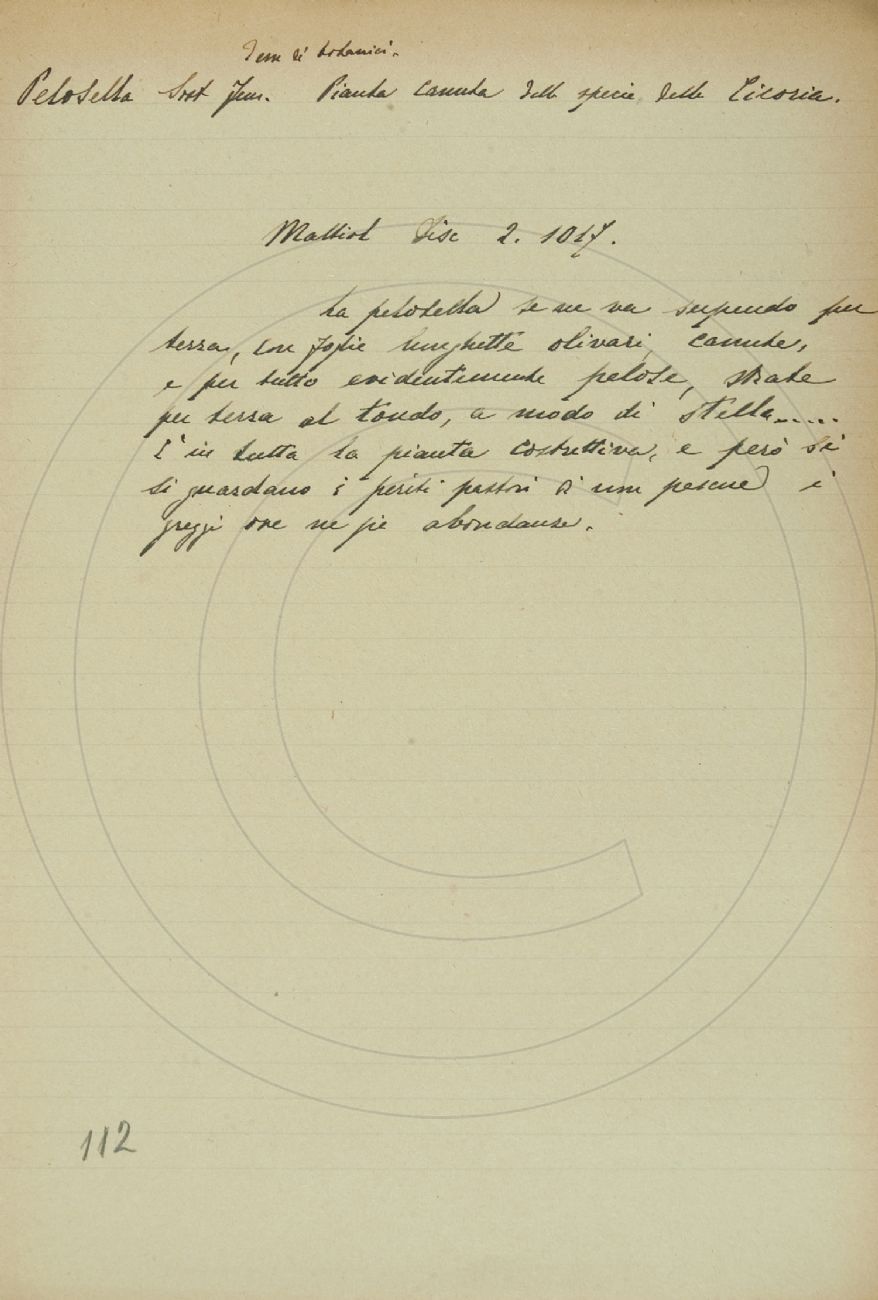 Term. di botanici.
Pelosella Sost. fem. Pianta canuta della specie delle Cicoria.
Mattiol Disc 2. 1017.
La pelosella se ne va serpendo per
terra, con foglie lunghette olivari, canute,
e per tutto evidentemente pelose, strate
per terra al tondo, a modo di stella.....
E' in tutta la pianta costrettiva, e però si
si guardano i periti pastori di non pascere i
greggi ove ne sie abondanze.
112